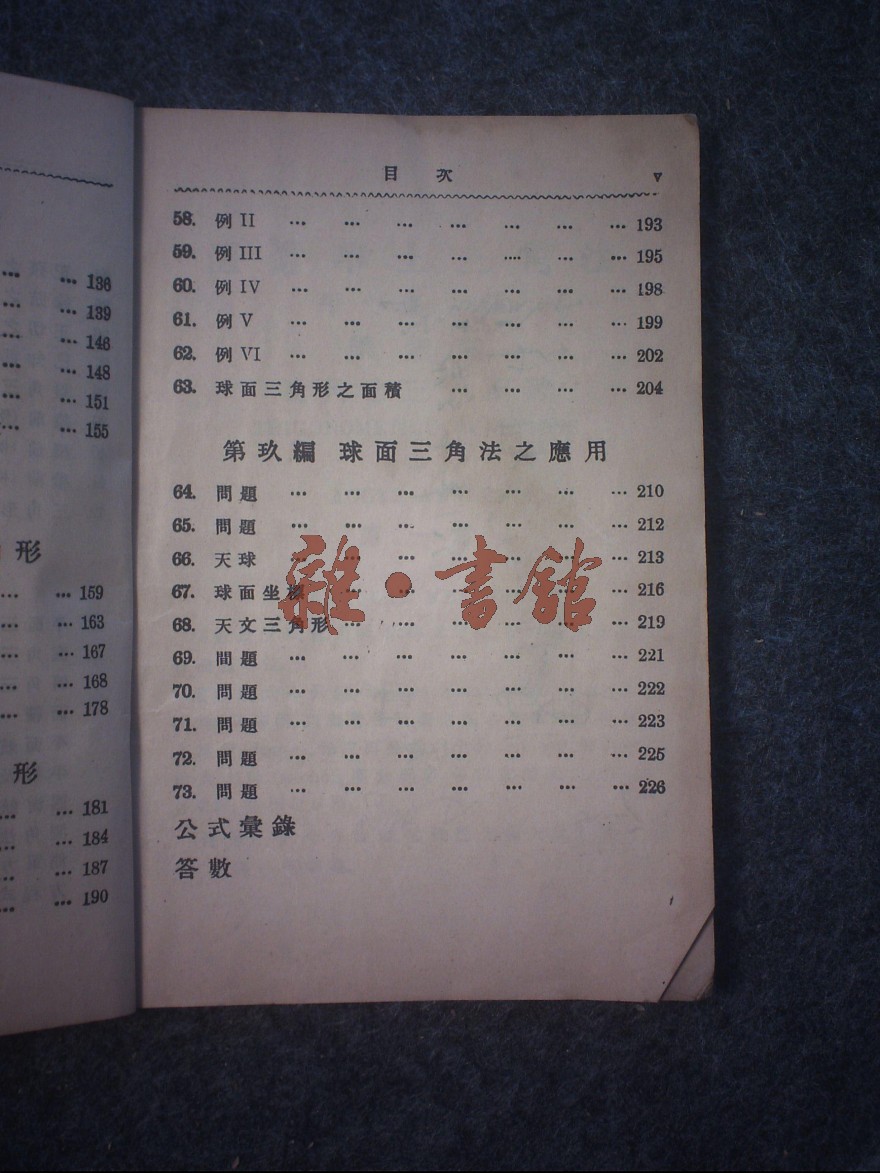 136
139
146
148
151
155
形
159
163
167
168
178
形
181
184
187
190
目次 v
58. 例 II ... ... ... ... ... ... ... 193
59. 例 III ... ... ... ... ... ... ... 195
60. 例 IV ... ... ... ... ... ... ... 198
61. 例 V ... ... ... ... ... ... ... 199
62. 例 VI ... ... ... ... ... ... ... 202
63. 球面三角形之面積 ... ... ... ... 204
第玖編 球面三角法之應用
64. 問題 ... ... ... ... ... ... ... 210
65. 問題 ... ... ... ... ... ... ... 212
66. 天球 ... ... ... ... ... ... ... 213
67. 球面坐標 ... ... ... ... ... ... 216
68. 天文三角形 ... ... ... ... ... ... 219
69. 問題 ... ... ... ... ... ... ... 221
70. 問題 ... ... ... ... ... ... ... 222
71. 問題 ... ... ... ... ... ... ... 223
72. 問題 ... ... ... ... ... ... ... 225
73. 問題 ... ... ... ... ... ... ... 226
公式彙錄
答數
雜·書館